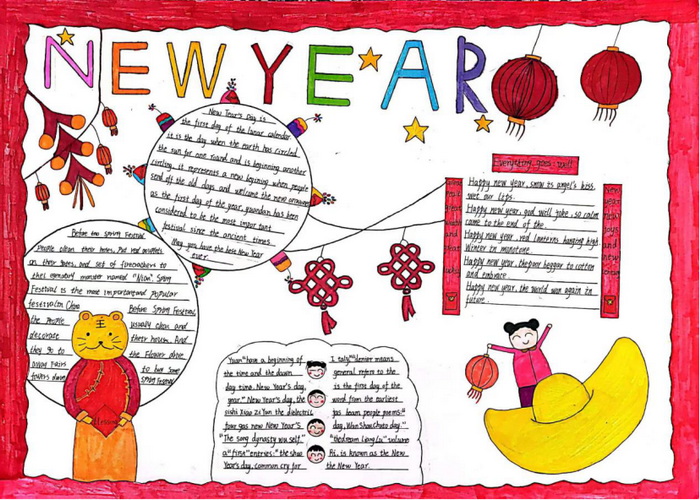 NEW YEAR
New Year's Day is
the first day of the lunar calendar
it is the day when the earth has circled
the sun for one round and is beginning another
circling, it represents a new begining when people
send off the old days and welcome the new
as the first day of the year, yuandan has been
considered to be the most important
festival since the ancient times.
May you have the best New Year
ever.
Everything goes well
Happy new year, snow is angel's kiss.
wet our lips.
Happy new year, god well joke, so calm
came to the end of the
Happy new year, red lanterns hanging high.
Winter in monotone
Happy new year, the poor beggar to cotton
and embrace
Happy new year, the world won again in
future
Before the Spring Festival
People clean their homes, Put red
on their doors, and set of firecrackers to
the monster named "Nian". Spring
Festival is the most important and popular
festival in China
the people
decorate
they go to
away
Before Spring Festival
usually clean and
their houses. And
the flower
to buy some
Spring Festival
"Yuan" have a beginning of
the time and the dawn
day time. New Year's day,
year." New Year's day, the
Xiao Zi Yun the dielectric
new New Year's
"The song dynasty wu self."
a "first" entries: "the
Year's day, common cry for
general refers to the
is the first day of the
word from the earliest
has been people poems:"
day, day."
volume
is known as the New
the New Year.